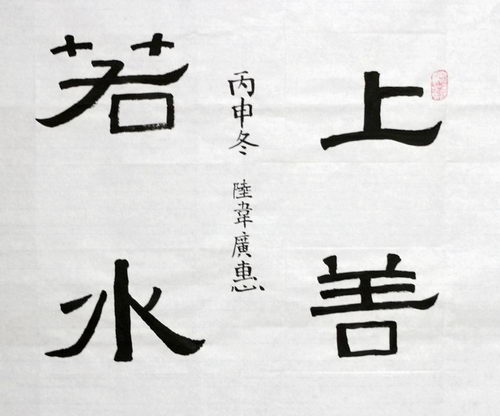 上善
丙申冬 陸韋廣惠
若水